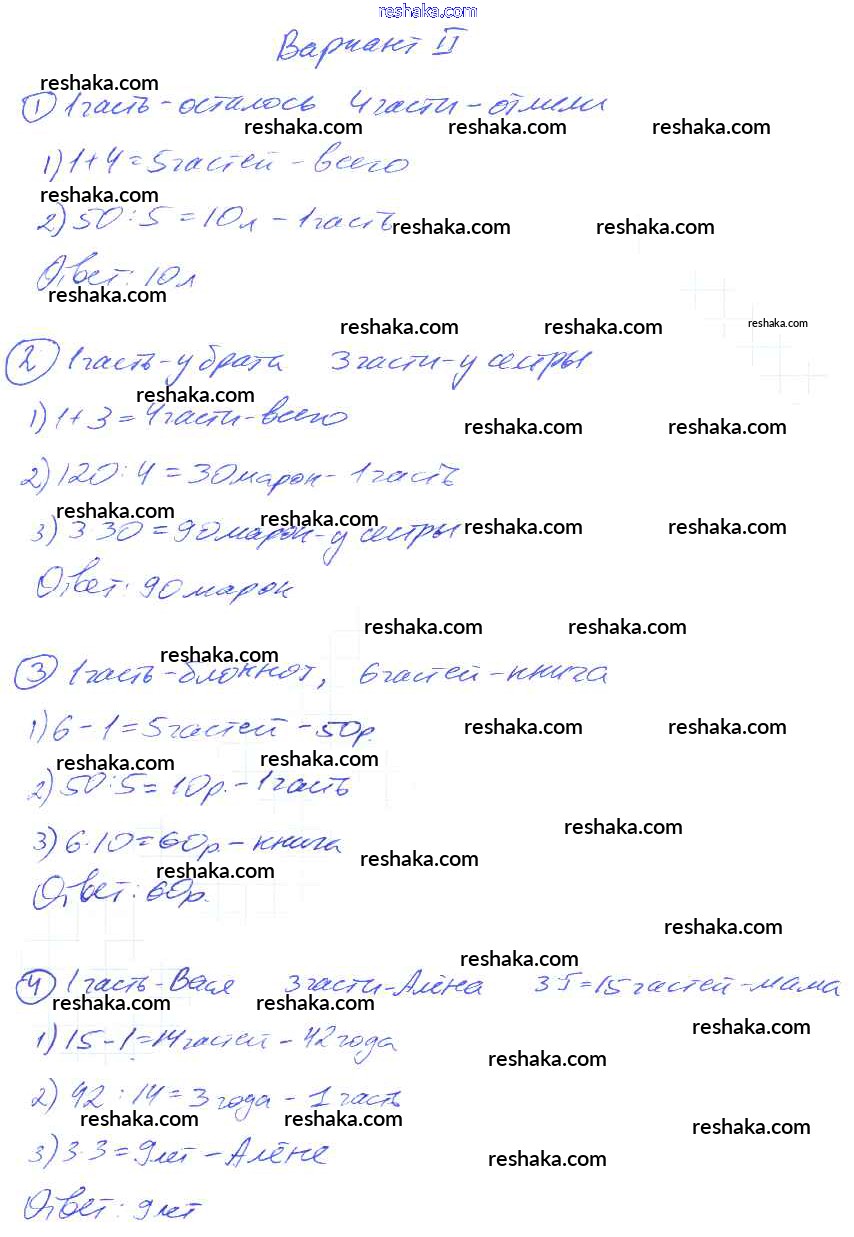 reshaka.com
Вариант II
reshaka.com
① 1 часть - осталось 4 части - отлили
reshaka.com reshaka.com reshaka.com
1) 1+4=5 частей - всего
reshaka.com
2) 50:5=10л - 1 часть
reshaka.com reshaka.com
Ответ: 10л
reshaka.com
reshaka.com reshaka.com reshaka.com
② 1 часть - у брата 3 части - у сестры
reshaka.com
1) 1+3=4 части - всего
reshaka.com reshaka.com
2) 120:4=30 марок - 1 часть
reshaka.com reshaka.com
3) 3·30=90 марок - у сестры
reshaka.com reshaka.com
Ответ: 90 марок
reshaka.com reshaka.com
reshaka.com
③ 1 часть - блокнот, 6 частей - книга
1) 6-1=5 частей - 50р.
reshaka.com reshaka.com
reshaka.com reshaka.com
2) 50:5=10р. - 1 часть
reshaka.com
3) 6·10=60р. - книга
reshaka.com
reshaka.com
Ответ: 60р.
reshaka.com
reshaka.com
④ 1 часть - Вася 3 части - Алёна 3·5=15 частей - мама
reshaka.com reshaka.com
reshaka.com
1) 15-1=14 частей - 42 года
reshaka.com
2) 42:14=3 года - 1 часть
reshaka.com reshaka.com reshaka.com
3) 3·3=9 лет - Алёне
reshaka.com
Ответ: 9 лет